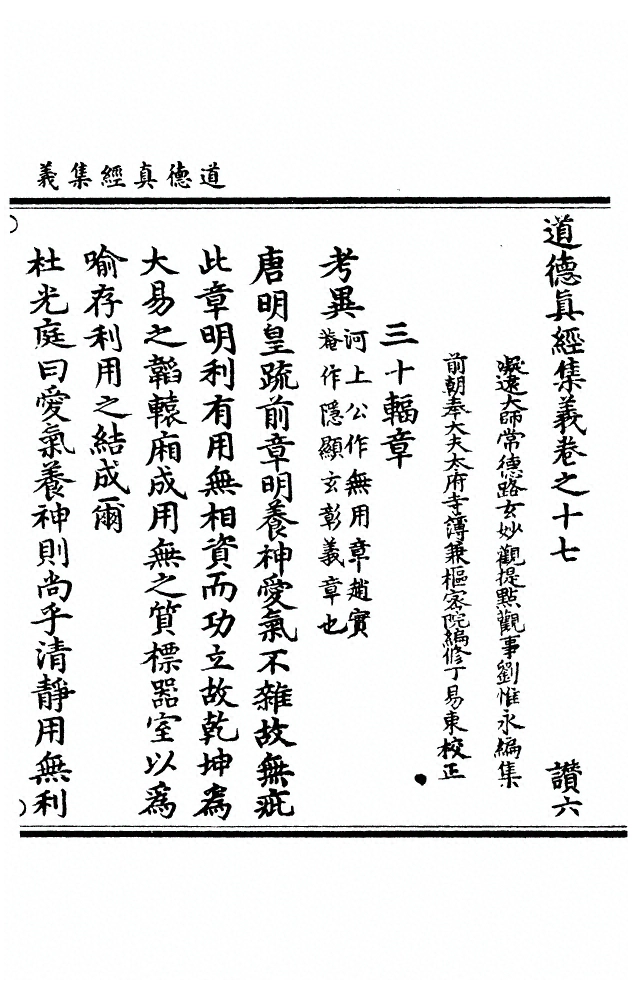 道德真經集義
道德真經集義卷之十七　讚六
凝遠大師常德路玄妙觀提點觀事劉惟永編集
前朝奉大夫太府寺簿兼樞密院編修丁易東校正
三十輻章
考異河上公作無用章趙實
菴作隱顯玄彰義章也
唐明皇疏前章明養神愛氣不雜故無疵
此章明利有用無相資而功立故乾坤為
大易之韜轅廂成用無之質標器室以為
喻存利用之結成爾
杜光庭曰愛氣養神則尚乎清靜用無利